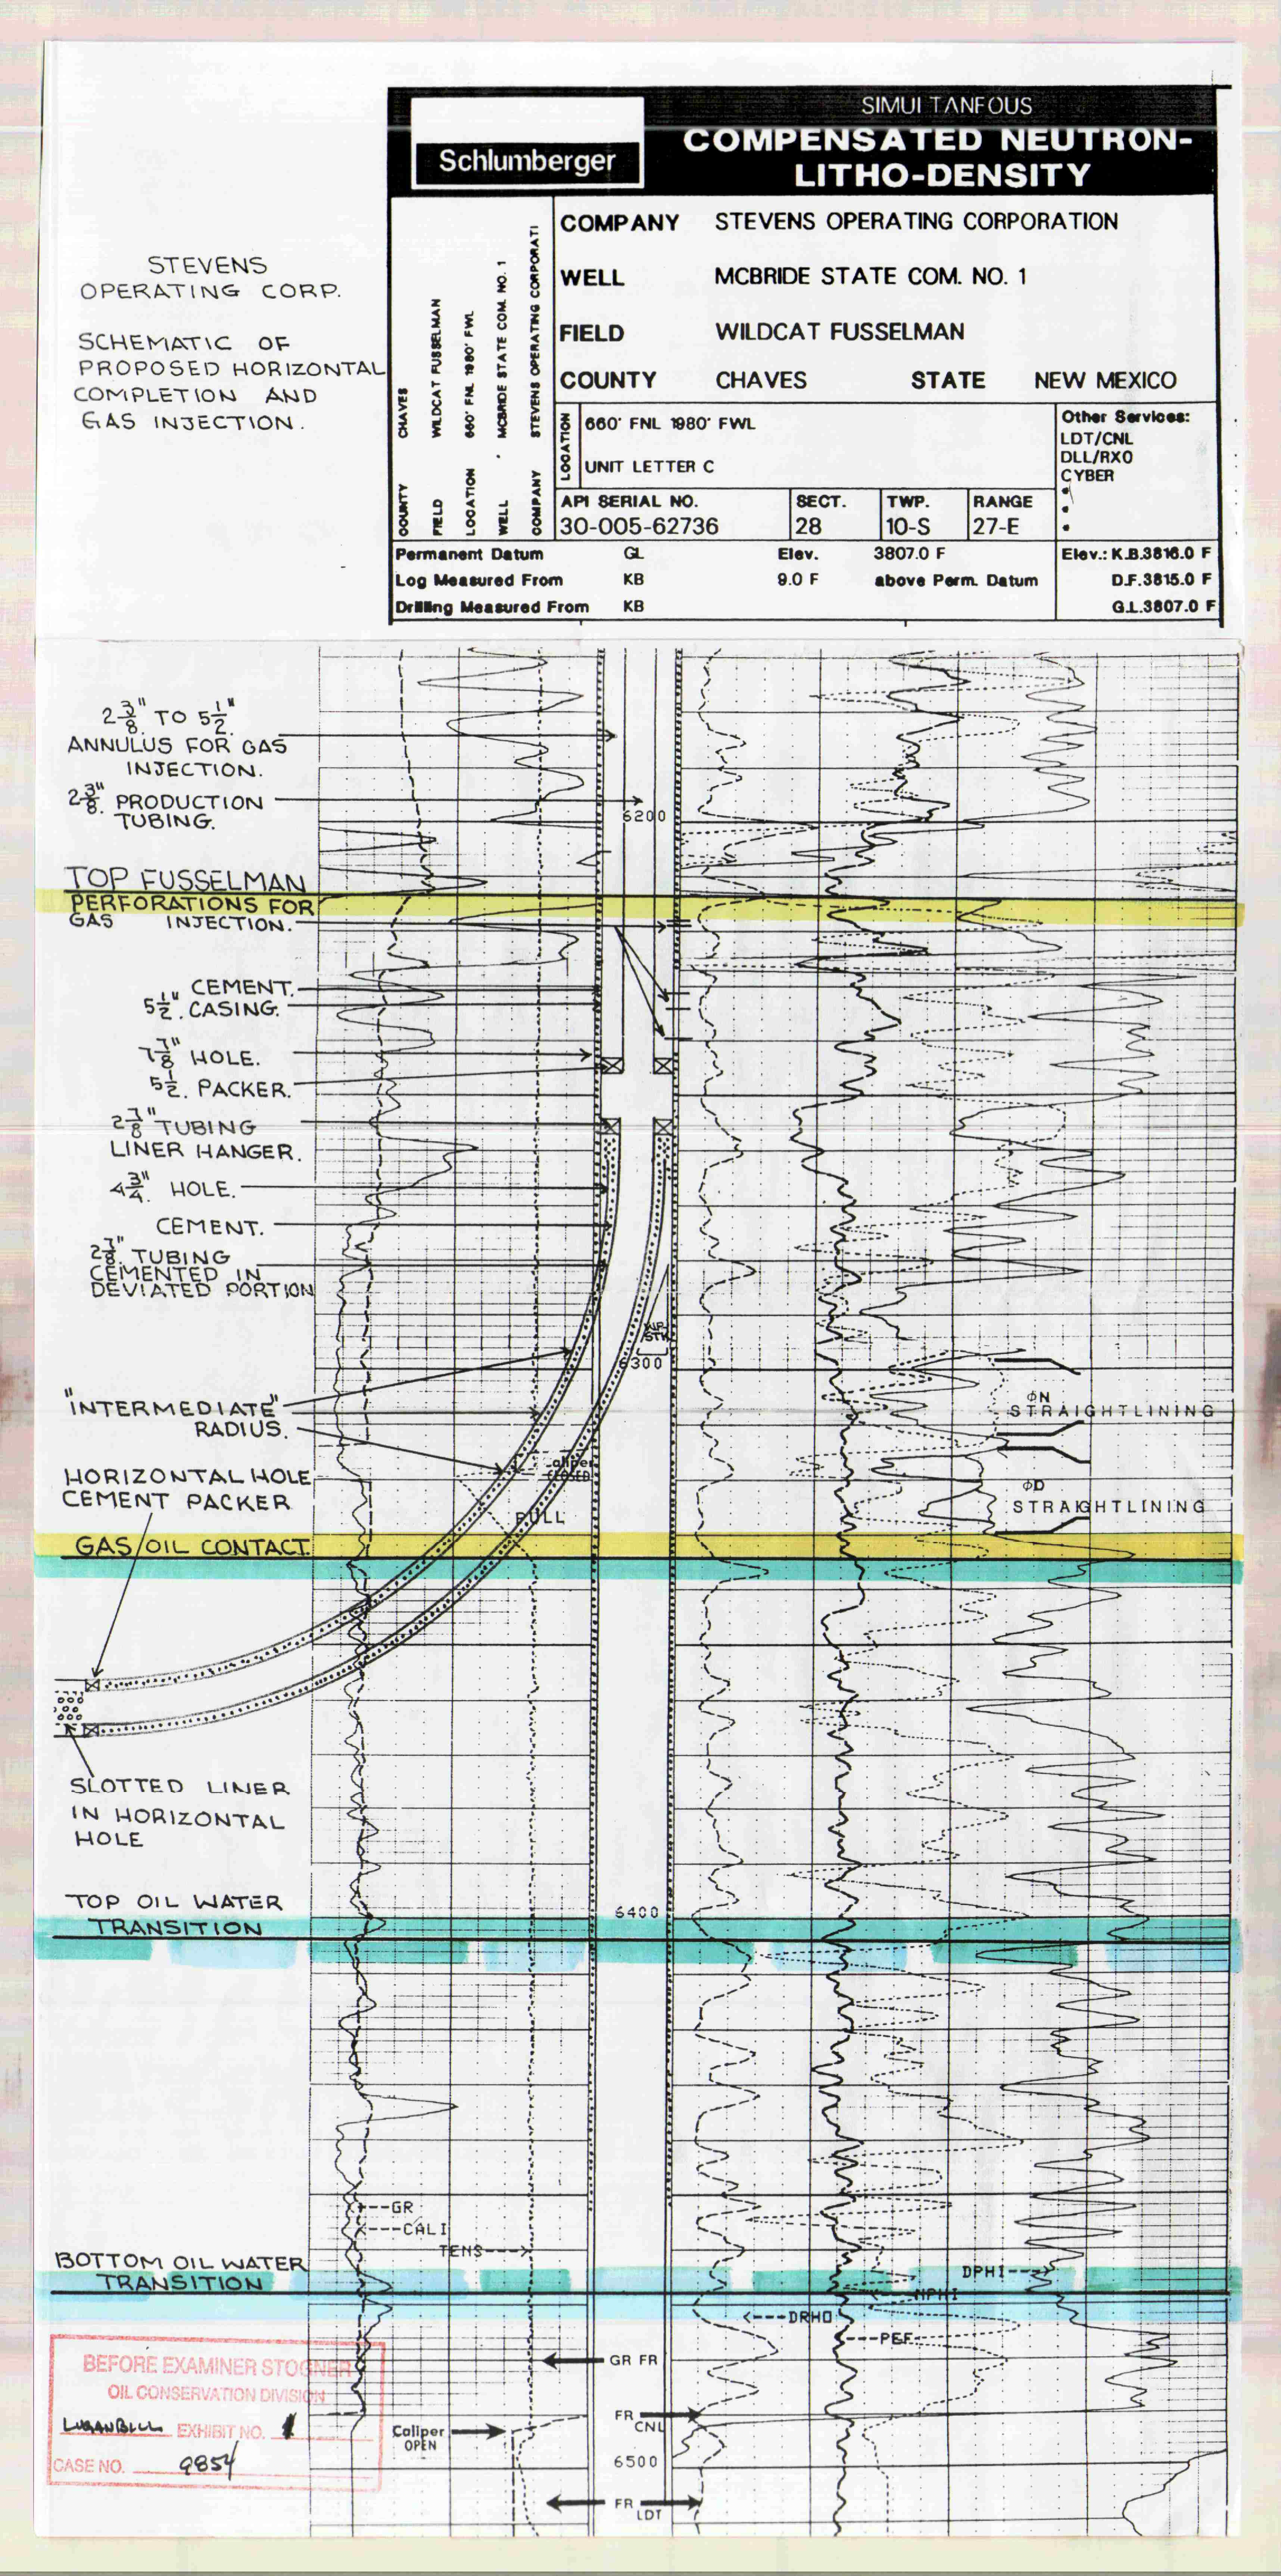 SIMULTANEOUS
COMPENSATED NEUTRON-
LITHO-DENSITY
Schlumberger
COMPANY STEVENS OPERATING CORPORATION
WELL MCBRIDE STATE COM. NO. 1
FIELD WILDCAT FUSSELMAN
COUNTY CHAVES STATE NEW MEXICO
LOCATION 660' FNL 1980' FWL
UNIT LETTER C
Other Services:
LDT/CNL
DLL/RXO
CYBER
API SERIAL NO. SECT. TWP. RANGE
30-005-62736 28 10-S 27-E
Permanent Datum GL Elev. 3807.0 F Elev.: K.B.3816.0 F
Log Measured From KB 9.0 F above Perm. Datum D.F.3815.0 F
Drilling Measured From KB G.L.3807.0 F
COUNTY CHAVES
FIELD WILDCAT FUSSELMAN
LOCATION 660' FNL 1980' FWL
WELL MCBRIDE STATE COM. NO. 1
COMPANY STEVENS OPERATING CORPORATI
STEVENS
OPERATING CORP.
SCHEMATIC OF
PROPOSED HORIZONTAL
COMPLETION AND
GAS INJECTION.
2 3/8" TO 5 1/2"
ANNULUS FOR GAS
INJECTION.
2 3/8" PRODUCTION
TUBING.
6200
TOP FUSSELMAN
PERFORATIONS FOR
GAS INJECTION.
CEMENT.
5 1/2" CASING.
7 7/8" HOLE.
5 1/2. PACKER.
2 7/8" TUBING
LINER HANGER.
4 3/4" HOLE.
CEMENT.
2 7/8" TUBING
CEMENTED IN
DEVIATED PORTION
WP
STK
6300
"INTERMEDIATE"
RADIUS.
ΦN
STRAIGHTLINING
HORIZONTAL HOLE
CEMENT PACKER
aliper
CLOSED
ΦD
STRAIGHTLINING
PULL
GAS/OIL CONTACT.
SLOTTED LINER
IN HORIZONTAL
HOLE
TOP OIL WATER
TRANSITION
6400
GR
CALI
TENS
BOTTOM OIL WATER
TRANSITION
DPHI
NPHI
DRHO
PEF
GR FR
FR
CNL
Caliper
OPEN
6500
FR
LDT
BEFORE EXAMINER STOGNER
OIL CONSERVATION DIVISION
EXHIBIT NO. 1
CASE NO. 9854